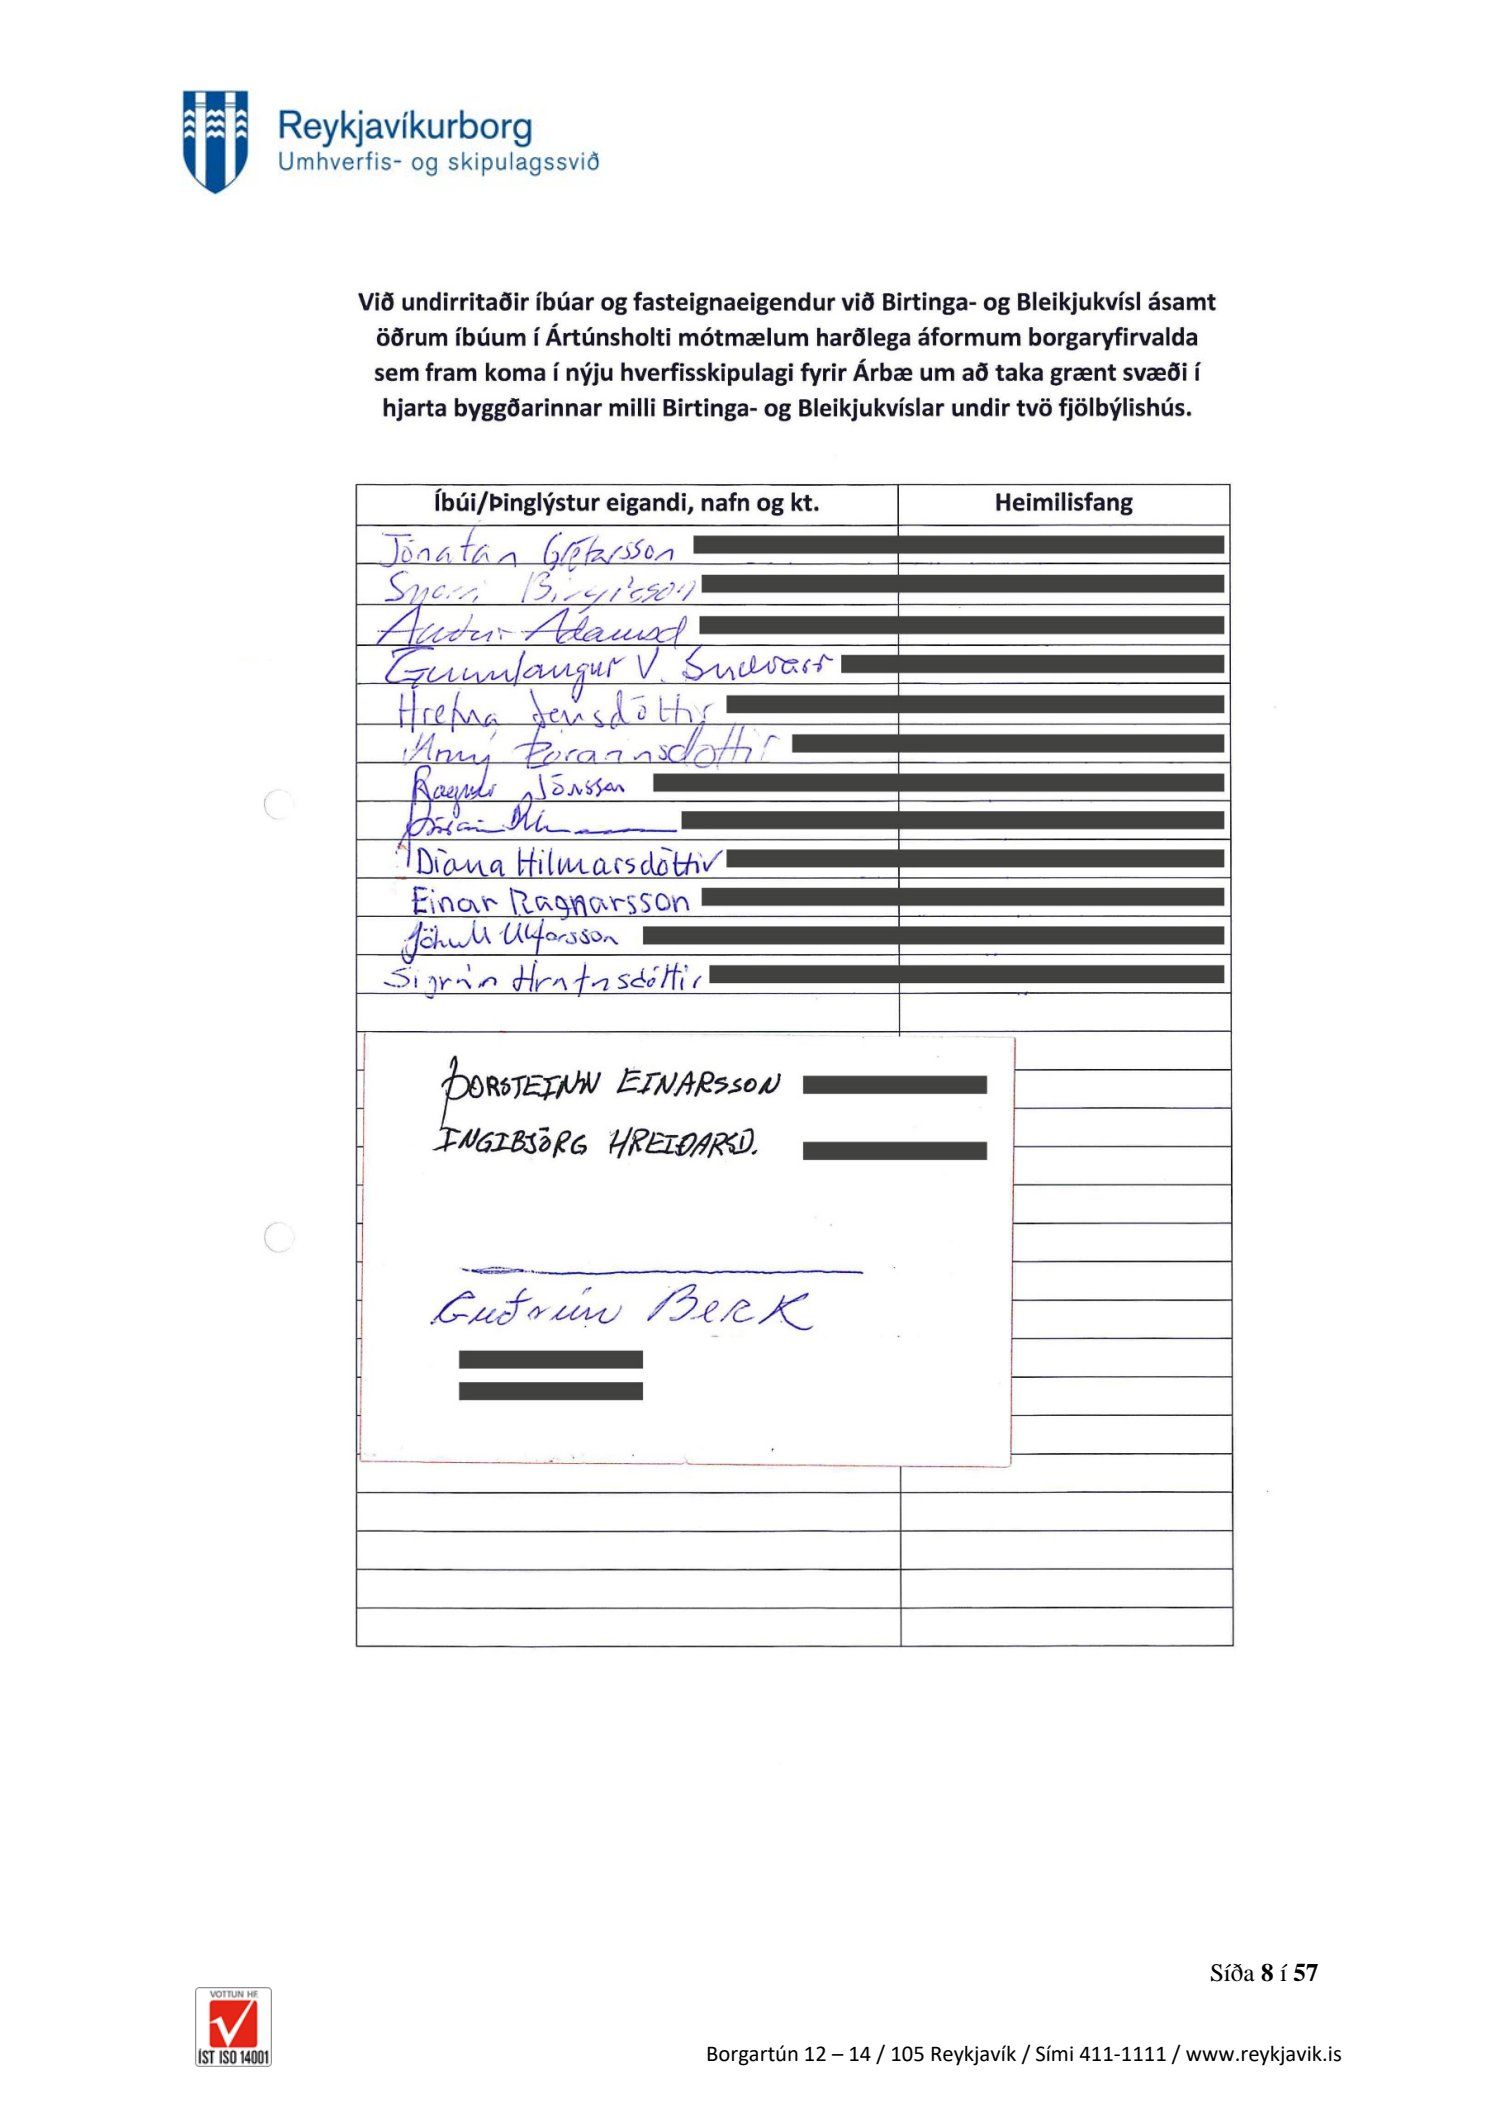 Reykjavíkurborg
Umhverfis- og skipulagssvið
Við undirritaðir íbúar og fasteignaeigendur við Birtinga- og Bleikjukvísl ásamt
öðrum íbúum í Ártúnsholti mótmælum harðlega áformum borgaryfirvalda
sem fram koma í nýju hverfisskipulagi fyrir Árbæ um að taka grænt svæði í
hjarta byggðarinnar milli Birtinga- og Bleikjukvíslar undir tvö fjölbýlishús.
Íbúi/Þinglýstur eigandi, nafn og kt. Heimilisfang
Jónatan Grétarsson
Birgisson
Auður Adamsd
Gunnlaugur V. Snævarr
Hrefna Jensdóttir
Þórarinsdóttir
Ragnar Jónsson
Díana Hilmarsdóttir
Einar Ragnarsson
Jökull Úlfarsson
Sigrún Hrafnsdóttir
ÞORSTEINN EINARSSON
INGIBJÖRG HREIÐARSD.
Guðrún Beck
Síða 8 í 57
VOTTUN HF.
ÍST ISO 14001
Borgartún 12 – 14 / 105 Reykjavík / Sími 411-1111 / www.reykjavik.is